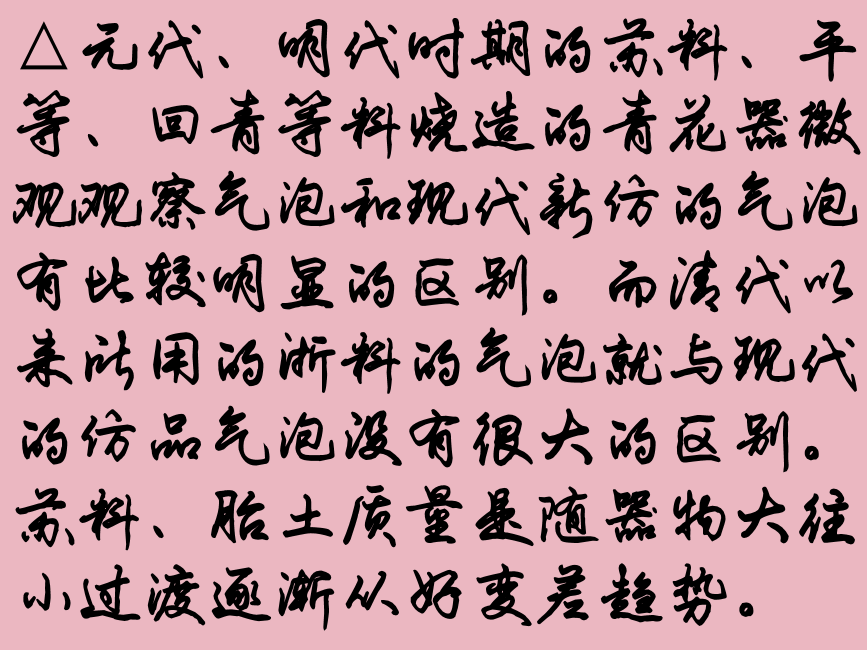 △元代、明代时期的苏料、平
等、回青等料烧造的青花器微
观观察气泡和现代新仿的气泡
有比较明显的区别。而清代以
来所用的浙料的气泡就与现代
的仿品气泡没有很大的区别。
苏料、胎土质量是随器物大往
小过渡逐渐从好变差趋势。